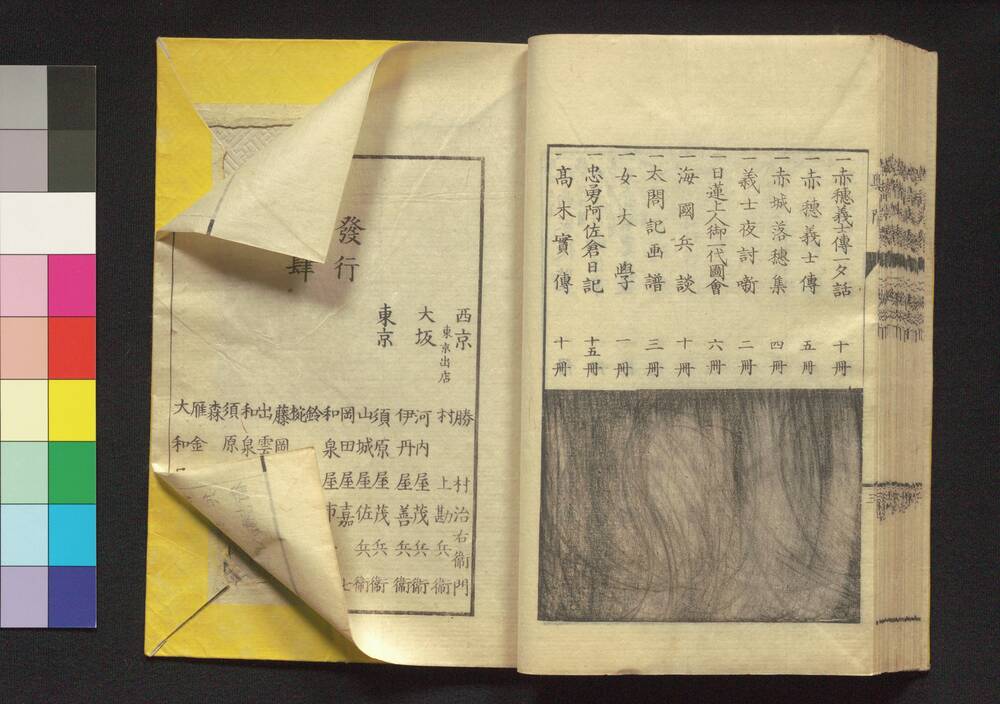 一赤穗義士傳一夕話 十冊
一赤穗義士傳 五冊
一赤城落穗集 四冊
一義士夜討噺 二冊
一日蓮上人御一代圖會 六冊
一海國兵談 十冊
一太閤記画譜 三冊
一女大學 一冊
一忠勇阿佐倉日記 十五冊
一髙木實傳 十冊
西京 勝村治右衞門
東京出店 村上勘兵衞
大坂 河内屋茂兵衞
伊丹屋善兵衞
東京 須原屋茂兵衞
山城屋佐兵衞
岡田屋嘉七
和泉屋市
鈴
椀
藤岡
出雲
和泉
須原
森
雁金
大和
發行
肆